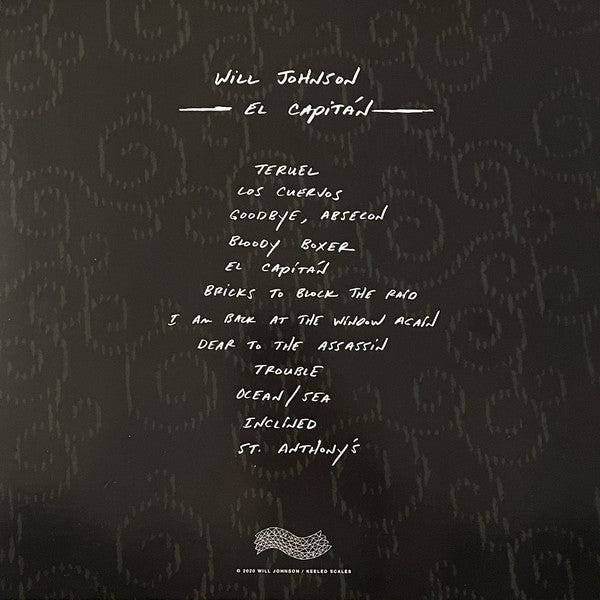 WILL JOHNSON
EL CAPITÁN
TERUEL
LOS CUERVOS
GOODBYE, ABSECON
BLOODY BOXER
EL CAPITÁN
BRICKS TO BLOCK THE RAID
I AM BACK AT THE WINDOW AGAIN
DEAR TO THE ASSASSIN
TROUBLE
OCEAN/SEA
INCLINED
ST. ANTHONY'S
© 2020 WILL JOHNSON / KEELED SCALES